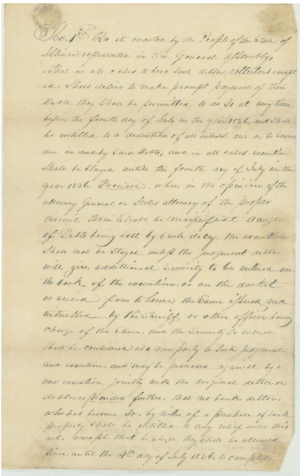 Sec. 1st Be it enacted by the People of the State of
Illinois represented in the General Assembly,
That in all cases where such debtor collectors except
ed, shall desire to make prompt payment of their
debts, they shall be permitted to do so at any time
before the fourth day of July in the year 1836, and shall
be entitled to a deduction of all interest due or to become
due on any said debts, and in all cases execution
shall be stayed until the fourth day of July in the
year 1836. Provided, when in the opinion of the
attorney General or States attorney of the proper
circuit there shall be danger
of Debts being lost by such stay, the execution
shall not be stayed unless the judgment debtor
will give additional security to be entered on
the back of the execution, or on the docket
or record from whence the same issued, and
witnessed by the Sheriff, or other officer having
charge of the same, and the security so entered
shall be considered as a party to such judgment
and execution, and may be proceeded against by a
new execution jointly with the original debtor or
debtors, provided further, that no bank debtor,
who has become so, by virtue of a purchase of bank
property shall be entitled to any relief under this
act, except that he, she or they shall be allowed
time until the 4th day of July 1836 to complete